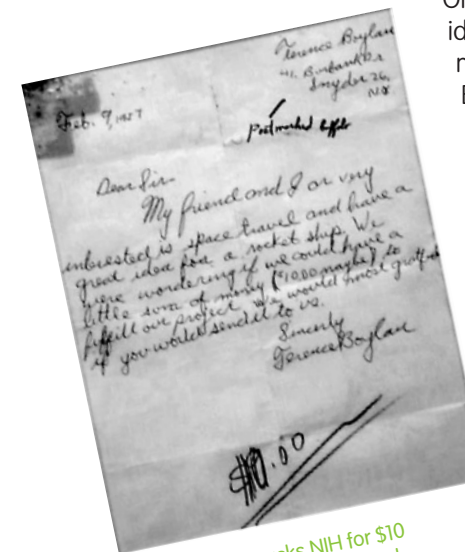 Terence Boylan
Burbank Dr
Snyder 26,
NY
Feb. 9, 1957
Postmarked Bfflo
Dear Sir
My friend and I or very
interested is space travel and have a
great idea for a rocket ship. We
were wondering if we could have a
little sum of mony ($10.00 maybe) to
fulfill our project. We would most
if you would send it to us.
Sincerly
Terence Boylan
$10.00
ks NIH for $10